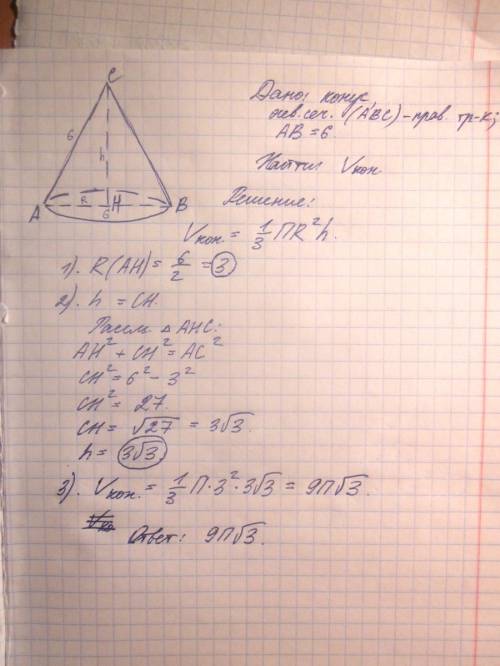 C
6
h
A
R
H
B
6
Дано: конус,
осев. сеч. (ABC) - прав. тр-к;
AB = 6.
Найти: Vкон
Решение:
Vкон. = 1/3 ПR²h.
1). R(AH) = 6/2 = 3
2). h = CH.
Рассм. △ AHC:
AH² + CH² = AC²
CH² = 6² - 3²
CH² = 27.
CH = √27 = 3√3.
h = 3√3.
3). Vкон. = 1/3 П·3²·3√3 = 9П√3.
Ответ: 9П√3.